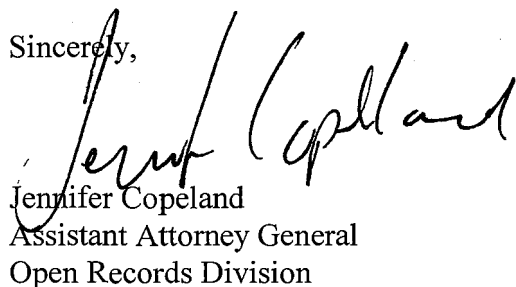 Sincerely,
Jennifer Copeland
Jennifer Copeland
Assistant Attorney General
Open Records Division